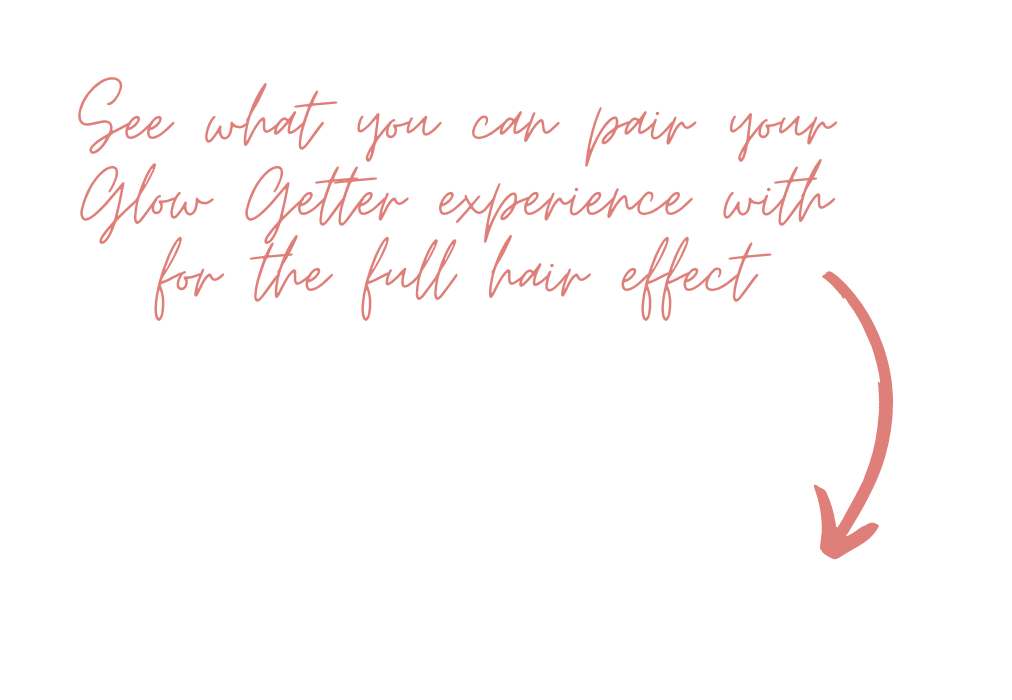 See what you can pair your
Glow Getter experience with
for the full hair effect